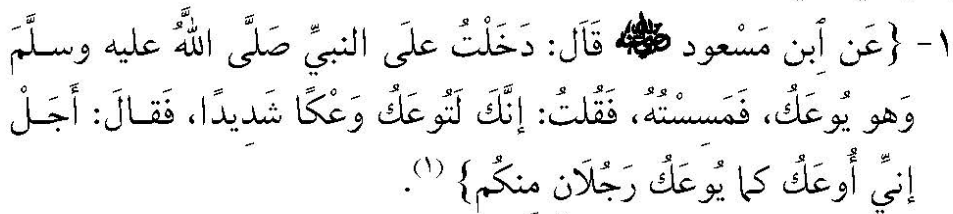 ١- {عَن ٱبن مَسْعود ﵁ قَال: دَخَلْتُ علَى النبيِّ صَلَّى اللَّهُ عليه وسلَّمَ
وَهو يُوعَكُ، فَمَسِسْتُهُ، فَقُلتُ: إنَّكَ لَتُوعَكُ وَعْكًا شَدِيدًا، فَقالَ: أَجَلْ
إنيِّ أُوعَكُ كما يُوعَكُ رَجُلَان منكُم} (١).